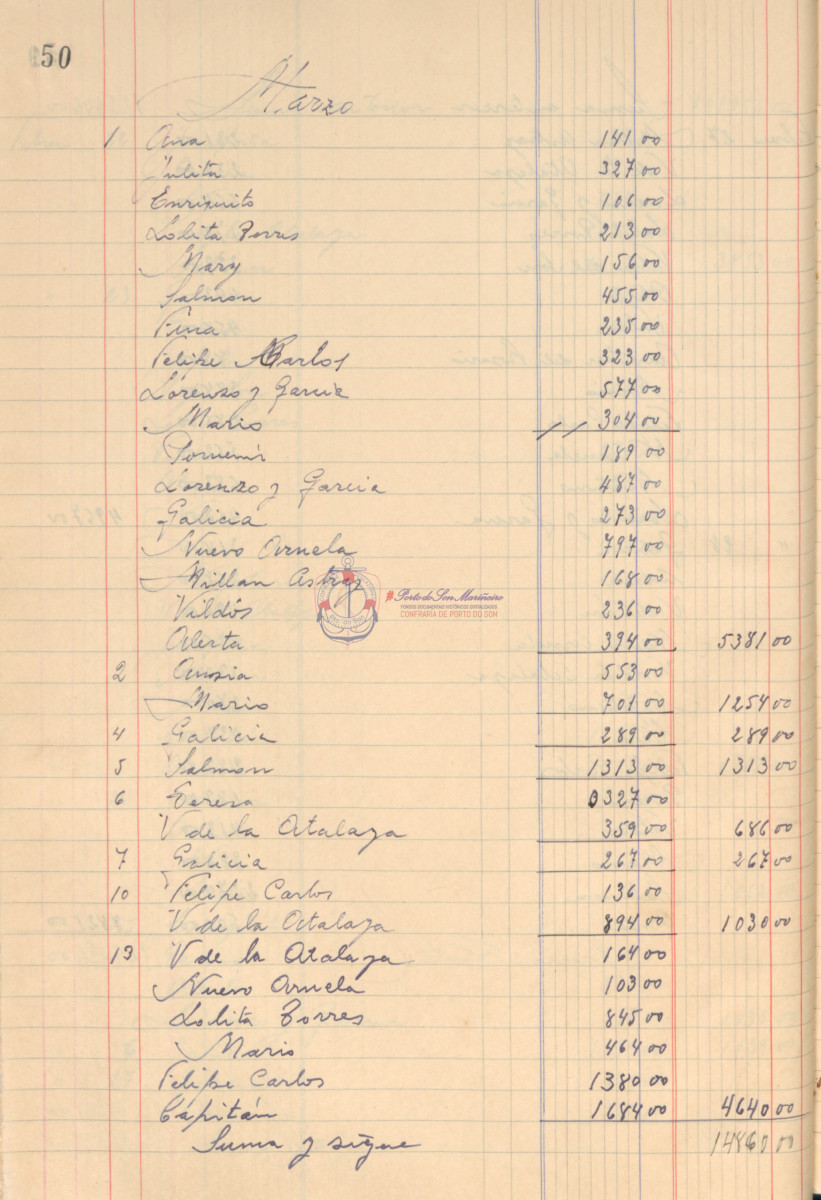 50
Marzo
1 Ana 141 00
Julita 327 00
Enriquito 106 00
Lolita Torres 213 00
Mary 156 00
Salmon 455 00
Tina 235 00
Felipe Carlos 323 00
Lorenzo y Garcia 577 00
Mario 304 00
Porvenir 189 00
Lorenzo y Garcia 487 00
Galicia 273 00
Nuevo Arnela 797 00
Millan Astray 168 00
Vildós 236 00
Alerta 394 00 5381 00
2 Ansia 553 00
Mario 701 00 1254 00
4 Galicia 289 00 289 00
5 Salmon 1313 00 1313 00
6 Teresa 327 00
V de la Atalaya 359 00 686 00
7 Galicia 267 00 267 00
10 Felipe Carlos 136 00
V de la Atalaya 894 00 1030 00
13 V de la Atalaya 164 00
Nuevo Arnela 103 00
Lolita Torres 845 00
Mario 464 00
Felipe Carlos 1380 00
Capitán 1684 00 4640 00
Suma y sigue 14860 00
Porto do Son Mariñeiro
FONDOS DOCUMENTAIS HISTÓRICOS DIXITALIZADOS
CONFRARÍA DE PORTO DO SON